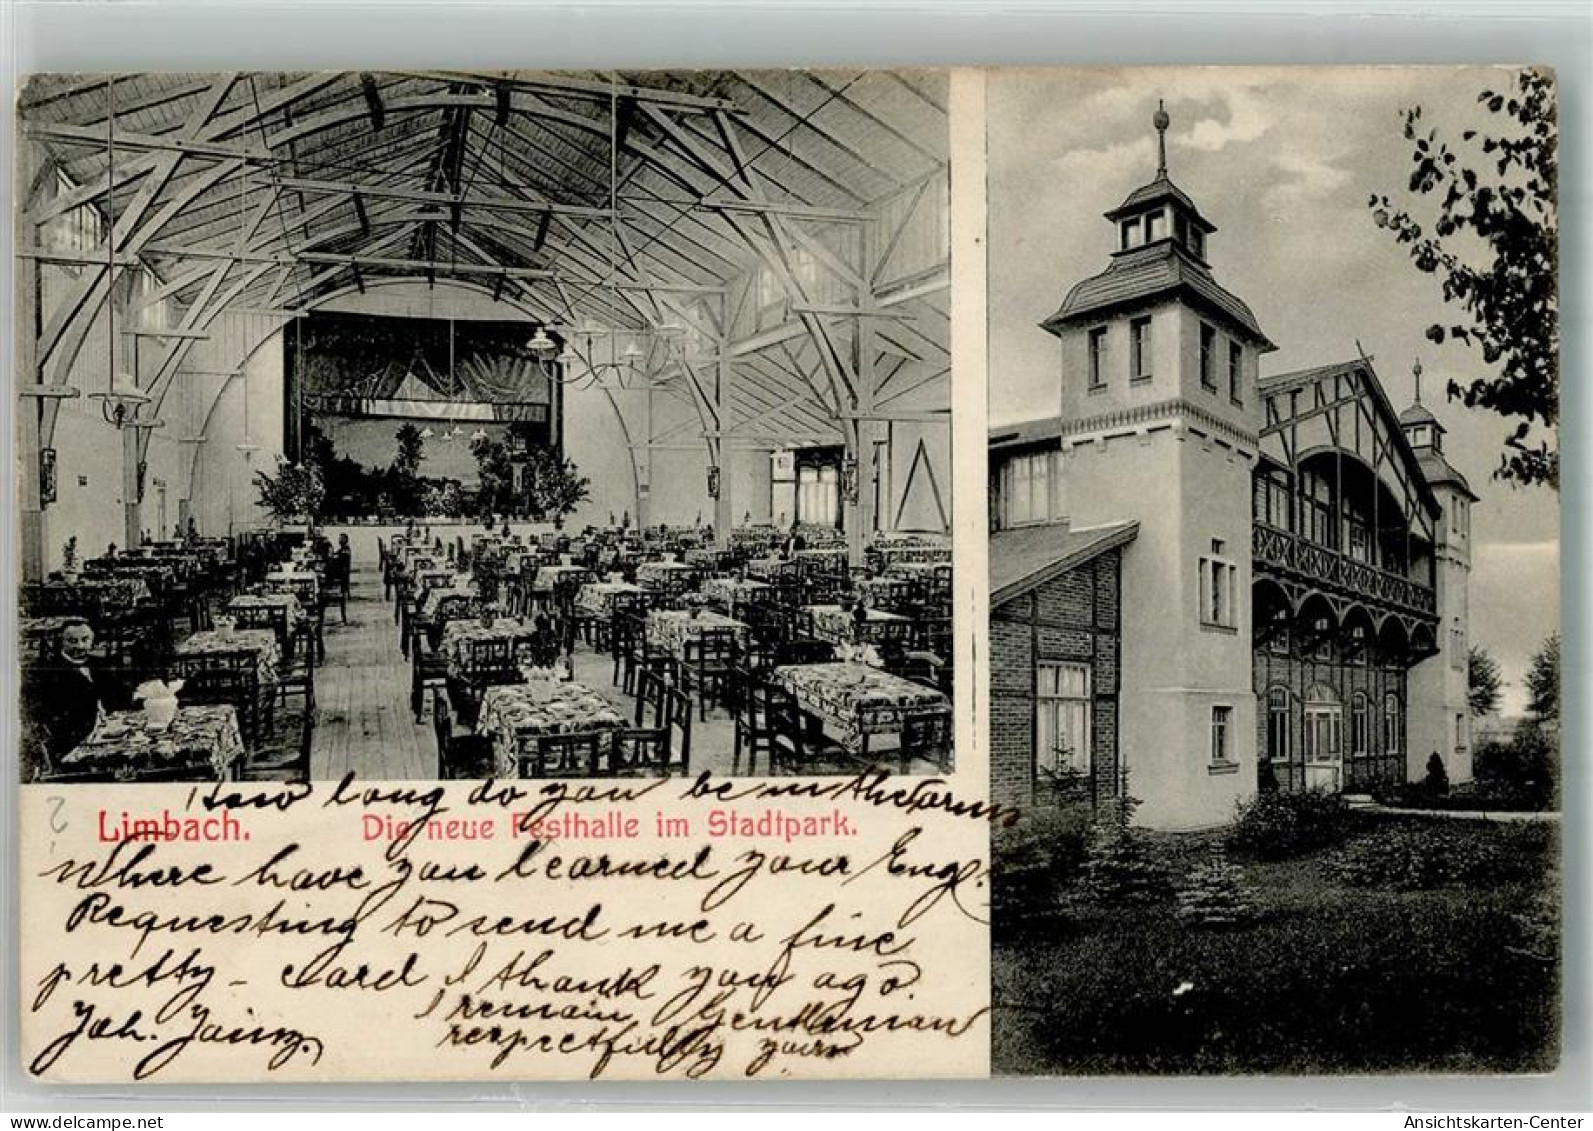 How long do you be in the
Limbach. Die neue Festhalle im Stadtpark.
Where have you learned your Engl.
Requesting to send me a fine
pretty - card I thank you ago.
I remain, Gentleman
Joh.
respectfully yours
Ansichtskarten-Center